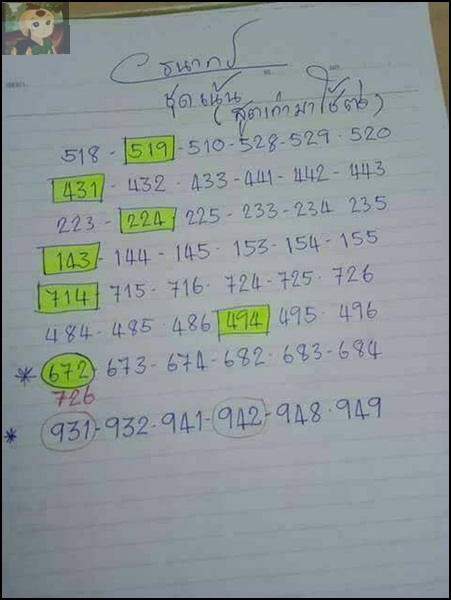 ธนากร
ชุดเน้น (สูตเก่ามาใช้ต่อ)
518 - 519 - 510 - 528 - 529 · 520
431 - 432 · 433 - 441 - 442 - 443
223 - 224 · 225 - 233 - 234 235
143 - 144 - 145 · 153 - 154 - 155
714 715 - 716 · 724 - 725 · 726
484 - 485 · 486 494 495 - 496
* 672 - 673 - 674 - 682 · 683 - 684
726
* 931 - 932 · 941 - 942 - 948 · 949